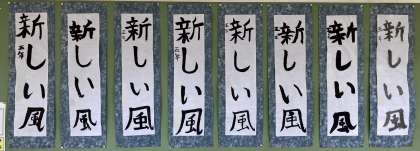 新しい風
五年
新しい風
新しい風
新しい風
五年
新しい風
新しい風
新しい風
新しい風